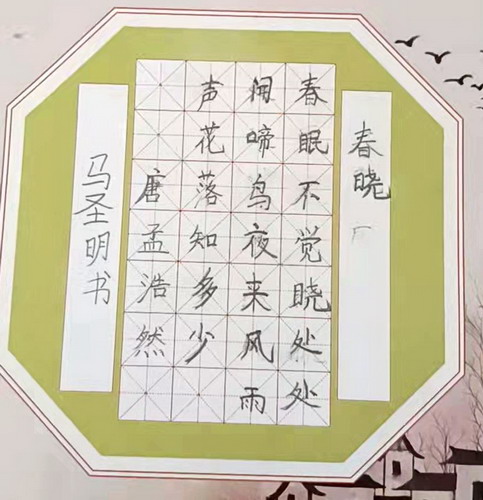 春晓
春眠不觉晓处处
闻啼鸟夜来风雨
声花落知多少
唐孟浩然
马圣明书